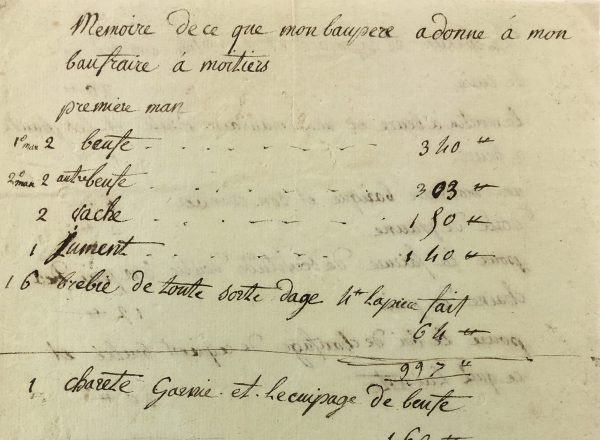 Memoire de ce que mon baupere a donne á mon
baufraire á moitiers
premiere man
1º man 2 beufe - - - - - - 340 ''
2º man 2 autre beufe - - - - - 303 ''
2 vache - - - - - - 150 ''
1 Jument - - - - - 140 ''
16 brebie de toute sorte dage 4'' lapiece fait
64 ''
997 ''
1 charete Garnie et lecuipage de beufe